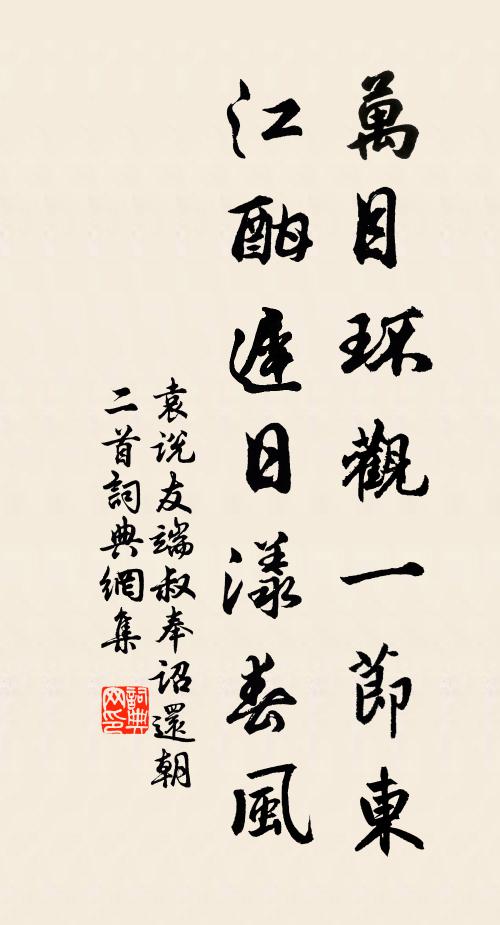 萬目環觀一節東
江酣遲日漾春風
袁説友端叔奉詔還朝
二首詞典網集
詞典網印